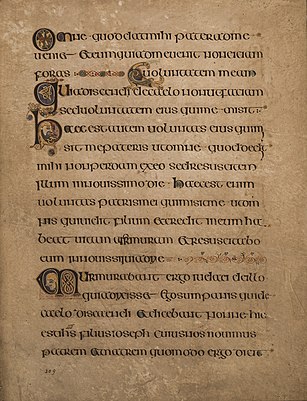 Omne quod dat mihi pater ad me
ueniet Et eum qui ad me uenit non eiciam
foras uoluntatem meam
Quia discendi de caelo non ut faciam
sed uoluntatem eius qui me misit
Haec est autem uoluntas eius qui mi
sit me patris ut omne quod dedit
mihi non perdam ex eo sed resuscitem
illum in nouissimo die Haec est enim
uoluntas patris mei qui misit me ut om
nis qui uidit filium et credit in eum ha
beat uitam aeternam et resuscitabo
eum in nouissimo die
Murmurabant ergo iudaei de illo
quia dixisset Ego sum panis qui de
caelo discendi Et dicebant nonne hic
est ihs filius ioseph cuius nos nouimus
patrem et matrem quomodo ergo dicit